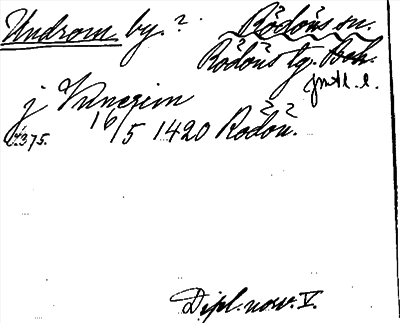 Undrom by? Rödöns sn.
Rödöns tg. Boh.
Jmtl. l.
j Vnnerim
16/5 1420 Rödön.
375.
Dipl. norv. V.